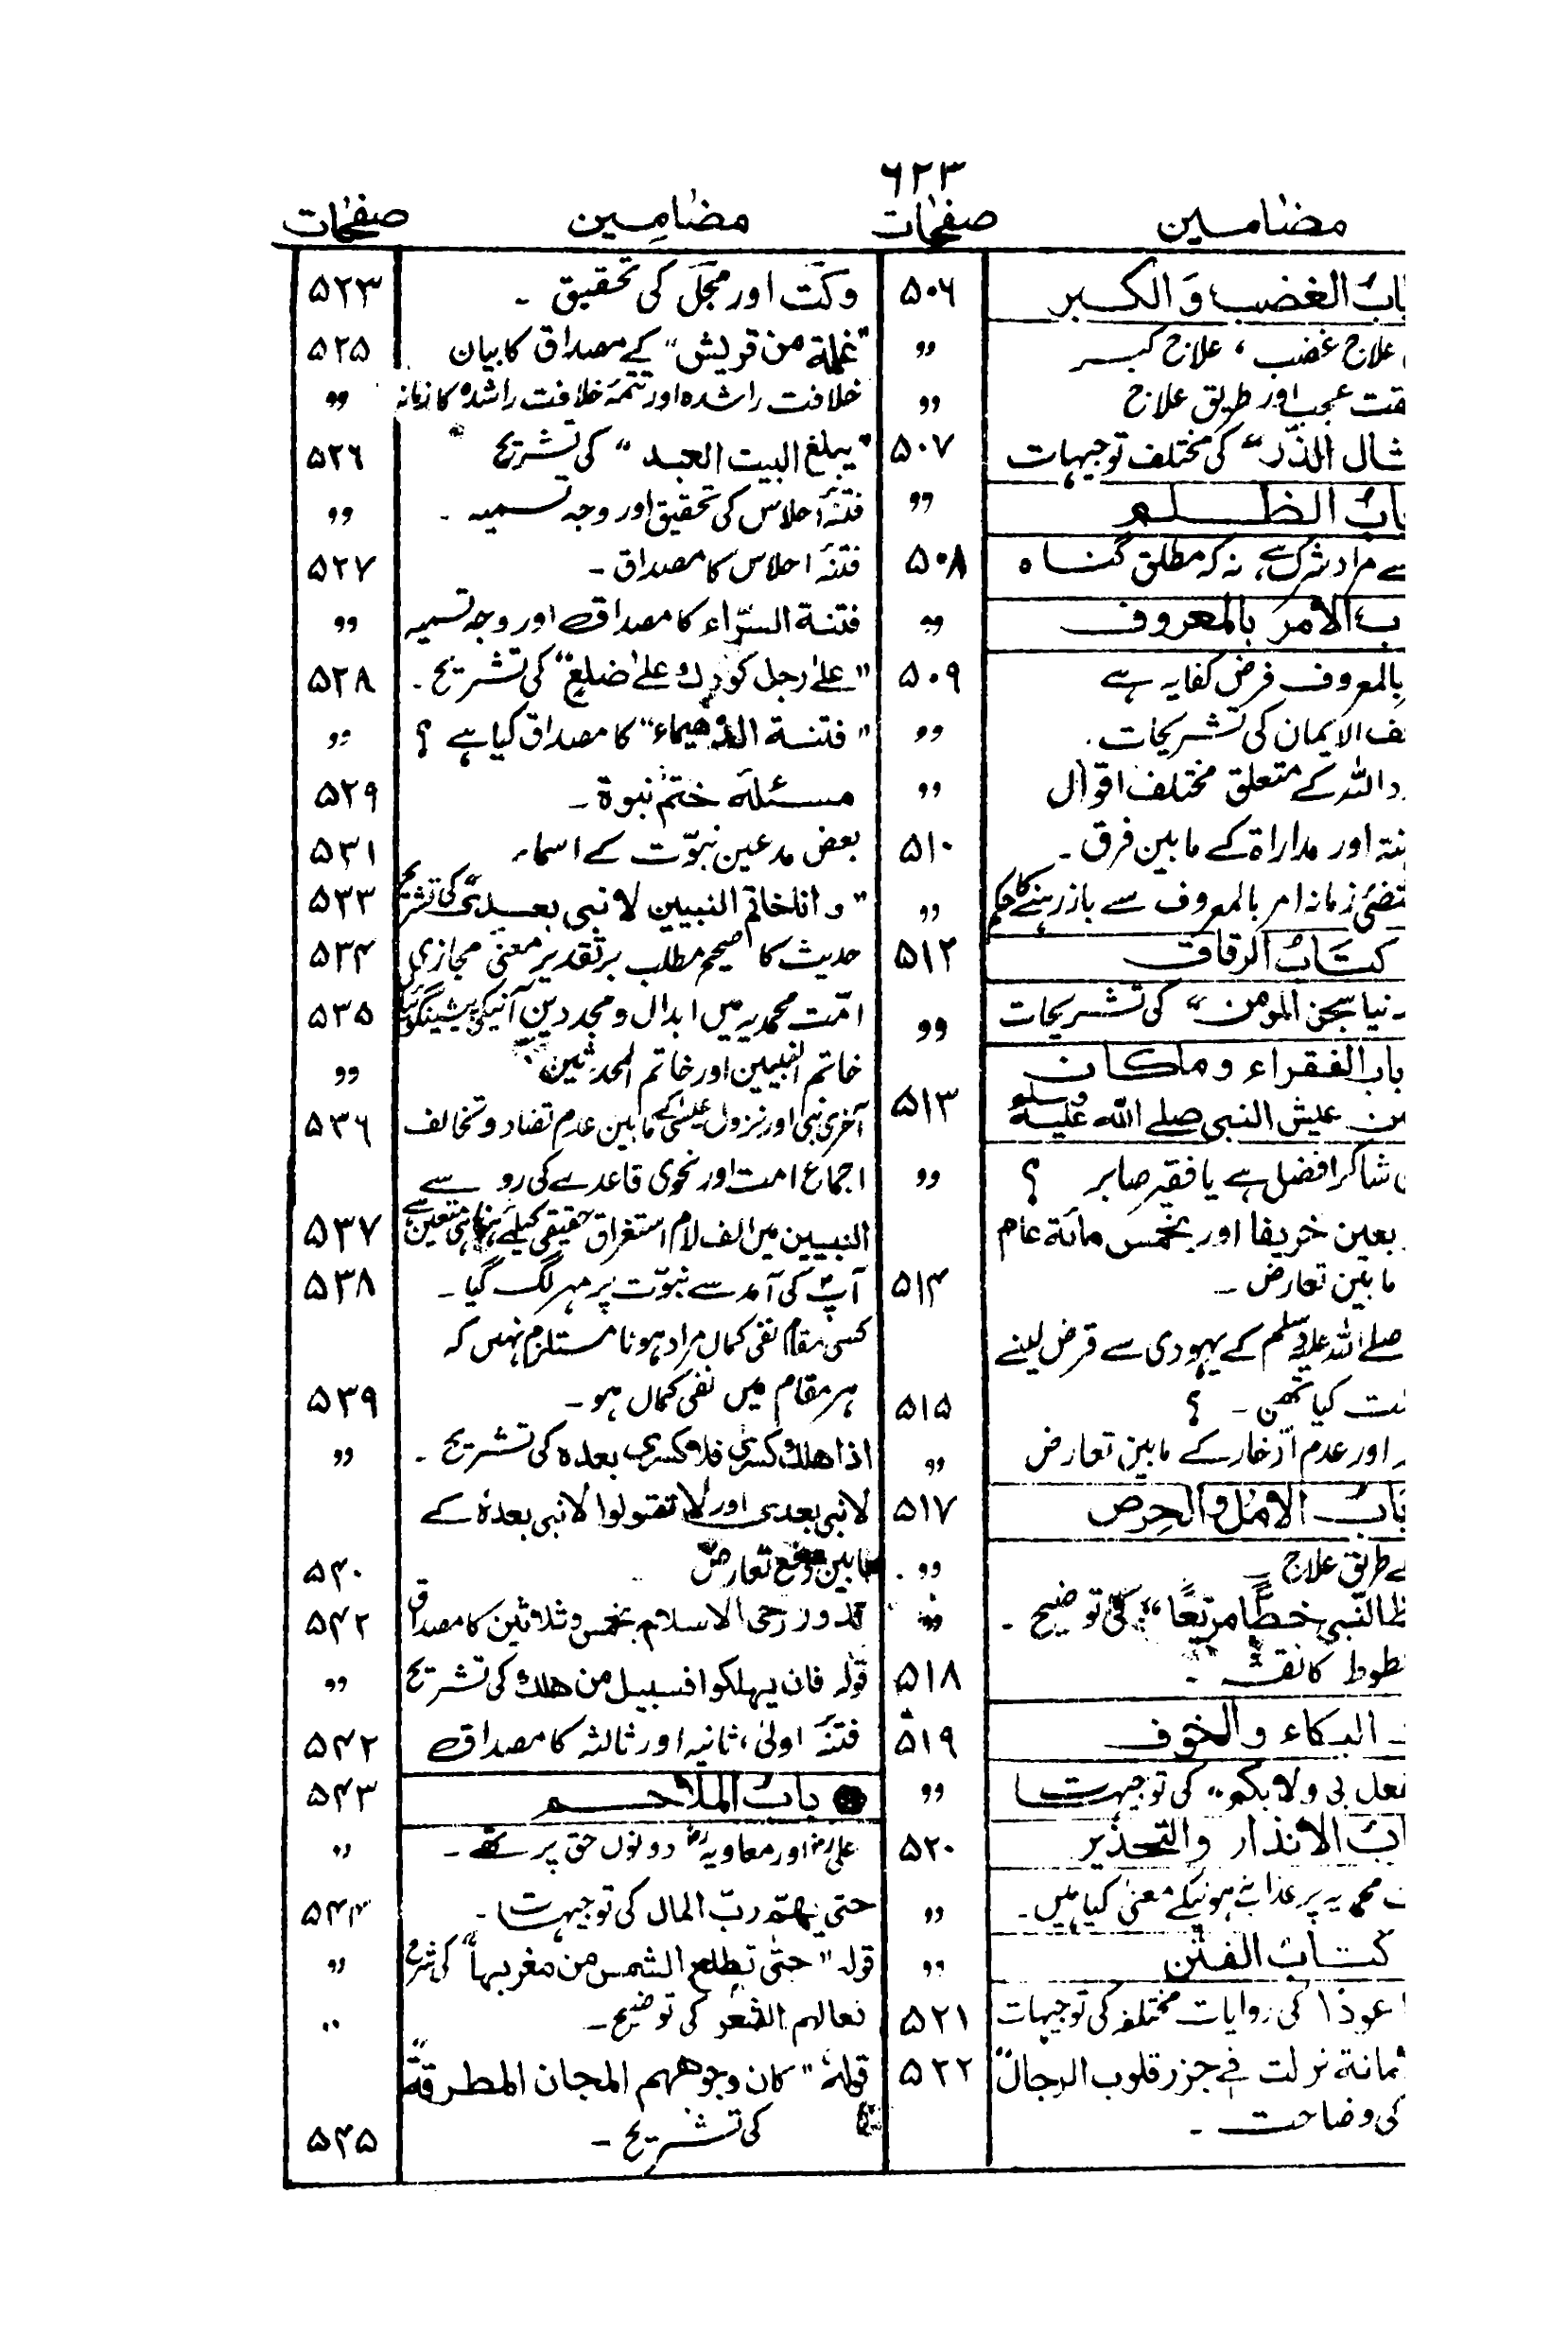 ۶۲۳
مضامین صفحات
اب الغضب و الکبر ۵۰۶
علاج غضب ، علاج کبر 〃
قت عجب اور طریق علاج 〃
ثال الذر“ کی مختلف توجیہات ۵۰۷
اب الظلم 〃
سے مراد شرک ہے، نہ کہ مطلق گناہ ۵۰۸
ب الامر بالمعروف 〃
بالمعروف فرض کفایہ ہے ۵۰۹
ف الایمان کی تشریحات . 〃
د اللہ کے متعلق مختلف اقوال 〃
نۃ اور مداراۃ کے مابین فرق ۔ ۵۱۰
تضئ زمانہ امر بالمعروف سے باز رہنے کا حکم 〃
کتاب الرقاق ۵۱۲
نیا سجن المومن “ کی تشریحات 〃
باب الفقراء و ماکان
من عیش النبی صلے اللہ علیہ وسلم ۵۱۳
شاکر افضل ہے یا فقیر صابر ؟ 〃
بعین خریفا اور بخمس مائۃ عام
مابین تعارض ۔ ۵۱۴
صلے اللہ علیہ وسلم کے یہودی سے قرض لینے
ت کیا تھی ۔ ؟ ۵۱۵
اور عدم ادّخار کے مابین تعارض 〃
باب الامل والحرص ۵۱۷
طریق علاج ـ 〃
ط النبی خطًّا مربّعًا “ کی توضیح ۔ 〃
طوط کا نقشہ ۔ ۵۱۸
البکاء والخوف ۵۱۹
فعل بی ولا بکم “ کی توجیہات 〃
اب الانذار والتحذیر ۵۲۰
محمدیہ پر عذاب نہ ہونیکے معنیٰ کیا ہیں ۔ 〃
کتاب الفتن 〃
عوذا کی روایات مختلفہ کی توجیہات ۵۲۱
مانۃ نزلت فی جزر قلوب الرجال“ ۵۲۲
کی وضاحت ۔
مضامین صفحات
وکت اور مجل کی تحقیق ۔ ۵۲۳
”غلمۃ من قریش“ کے مصداق کا بیان ۵۲۵
خلافت راشدہ اور تتمۂ خلافت راشدہ کا زمانہ 〃
”یبلغ البیت العبد “ کی تشریح ۵۲۶
فتنۂ احلاس کی تحقیق اور وجہ تسمیہ ۔ 〃
فتنۂ احلاس کا مصداق ۔ ۵۲۷
فتنۃ السرّاء کا مصداق اور وجہ تسمیہ 〃
”علیٰ رجل کورک علیٰ ضلع“ کی تشریح ۔ ۵۲۸
” فتنۃ الدھیماء“ کا مصداق کیا ہے ؟ 〃
مسئلہ ختم نبوۃ ۔ ۵۲۹
بعض مدعین نبوّت کے اسماء ۵۳۱
” و انا خاتم النبیین لا نبی بعدی“ کی تشریح ۵۳۳
حدیث کا صحیح مطلب بر تقدیر معنی مجازی ۵۳۴
امّت محمدیہ میں ابدال و مجددین آنیکی پیشینگوئی ۵۳۵
خاتم النبیین اور خاتم المحدثین 〃
آخری نبی اور نزول عیسٰیؑ کے مابین عدم تضاد و تخالف ۵۳۶
اجماع امت اور نحوی قاعدے کی رو سے
النبیین میں الف لام استغراق حقیقی کیلئے ہونا ہی متعین ہے ۵۳۷
آپؐ کی آمد سے نبوّت پر مہر لگ گیا ۔ ۵۳۸
کسی مقام نفی کمال مراد ہونا مستلزم نہیں کہ
ہر مقام میں نفی کمال ہو ۔ ۵۳۹
اذا ھلک کسریٰ فلا کسریٰ بعدہ کی تشریح ۔ 〃
لا نبی بعدی اور لا تقولوا لا نبی بعدہٗ کے
مابین دفع تعارض ۵۴۰
تدور رحی الاسلام بخمس و ثلاثین کا مصداق ۵۴۲
قولہٗ فان یہلکوا فسبیل من ھلک کی تشریح 〃
فتنۂ اولیٰ ، ثانیہ اور ثالثہ کا مصداق ۵۴۲
باب الملاحم ۵۴۳
علیؓ اور معاویہؓ دونوں حق پر تھے ۔ 〃
حتی یھتم ربّ المال کی توجیہات ۔ ۵۴۴
قولہ ” حتّٰی تطلع الشمس من مغربہا“ کی شرح 〃
نعالہم الشعر کی توضیح ۔ 〃
قولہٗ ” کان وجوھہم المجان المطرقۃ“
کی تشریح ۔ ۵۴۵